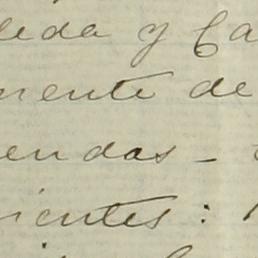 leida y Ca
mente de
endas -
ientes: